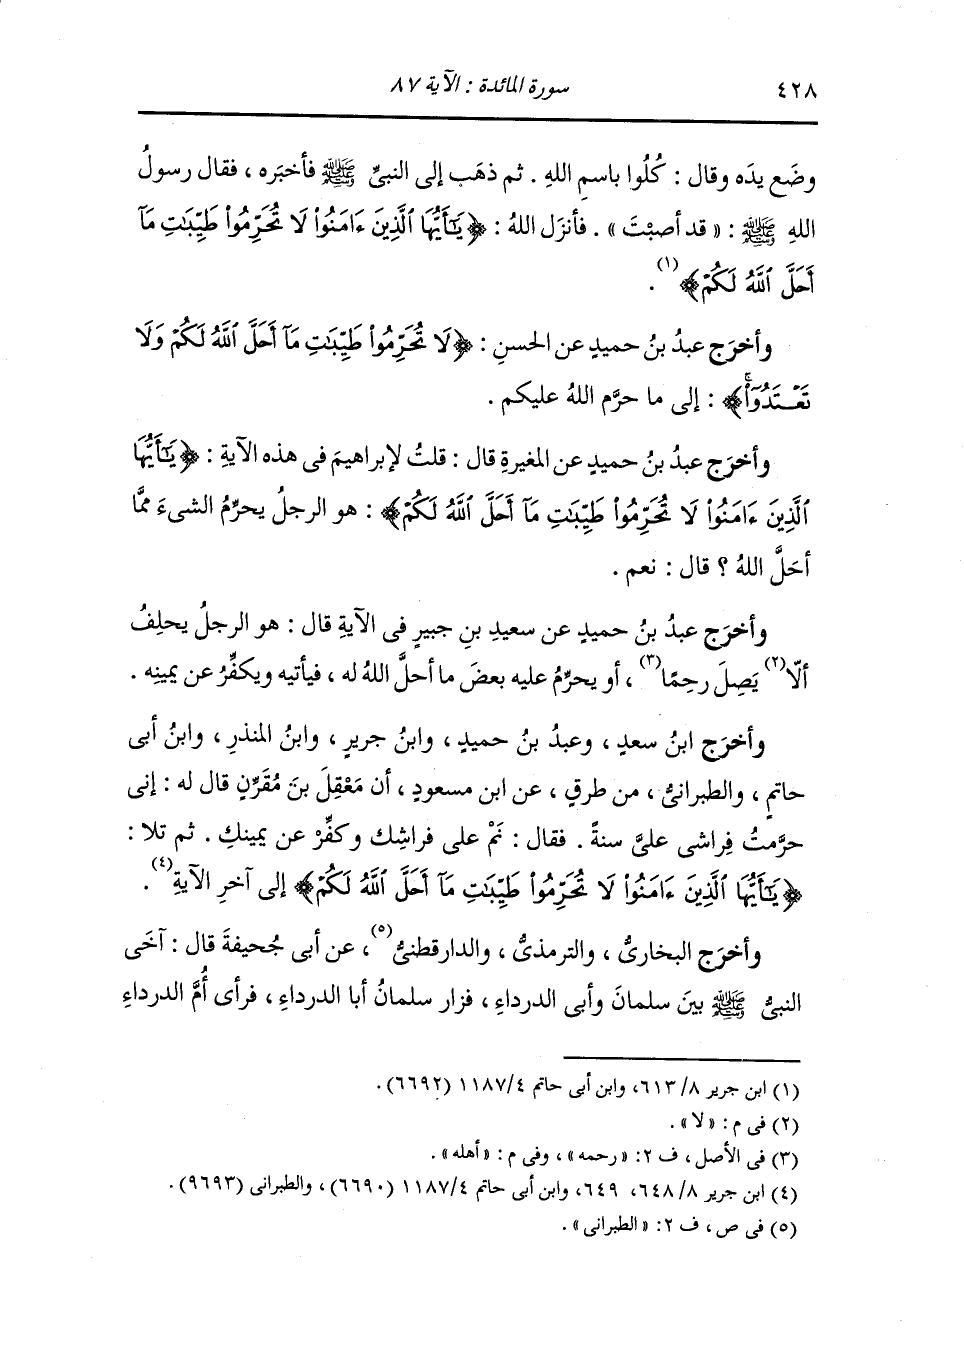 ٤٢٨
سورة المائدة : الآية ٨٧
وضَع يدَه وقال : كُلُوا باسمِ اللهِ . ثم ذهَب إلى النبىِّ ﷺ فأخبَره ، فقال رسولُ
اللهِ ﷺ : « قد أصبْتَ » . فأنزَل اللهُ : ﴿يَٰٓأَيُّهَا ٱلَّذِينَ ءَامَنُوا۟ لَا تُحَرِّمُوا۟ طَيِّبَٰتِ مَآ
أَحَلَّ ٱللَّهُ لَكُمْ﴾(١) .
وأخرَج عبدُ بنُ حميدٍ عن الحسنِ : ﴿لَا تُحَرِّمُوا۟ طَيِّبَٰتِ مَآ أَحَلَّ ٱللَّهُ لَكُمْ وَلَا
تَعْتَدُوٓا۟ۚ﴾ : إلى ما حرَّم اللهُ عليكم .
وأخرَج عبدُ بنُ حميدٍ عن المغيرةِ قال : قلتُ لإبراهيمَ فى هذه الآيةِ : ﴿يَٰٓأَيُّهَا
ٱلَّذِينَ ءَامَنُوا۟ لَا تُحَرِّمُوا۟ طَيِّبَٰتِ مَآ أَحَلَّ ٱللَّهُ لَكُمْ﴾ : هو الرجلُ يحرِّمُ الشىءَ ممَّا
أحَلَّ اللهُ ؟ قال : نعم .
وأخرَج عبدُ بنُ حميدٍ عن سعيدِ بنِ جبيرٍ فى الآيةِ قال : هو الرجلُ يحلِفُ
ألّا(٢) يَصِلَ رحِمًا(٣) ، أو يحرِّمُ عليه بعضَ ما أحلَّ اللهُ له ، فيأتيه ويكفِّرُ عن يمينِه .
وأخرَج ابنُ سعدٍ ، وعبدُ بنُ حميدٍ ، وابنُ جريرٍ ، وابنُ المنذرِ ، وابنُ أبى
حاتمٍ ، والطبرانىُّ ، من طرقٍ ، عن ابن مسعودٍ ، أن مَعْقِلَ بنَ مُقَرِّنٍ قال له : إنى
حرَّمتُ فِراشى علىَّ سنةً . فقال : نَمْ على فراشِك وكفِّرْ عن يمينِك . ثم تلا :
﴿يَٰٓأَيُّهَا ٱلَّذِينَ ءَامَنُوا۟ لَا تُحَرِّمُوا۟ طَيِّبَٰتِ مَآ أَحَلَّ ٱللَّهُ لَكُمْ﴾ إلى آخرِ الآيةِ(٤) .
وأخرَج البخارىُّ ، والترمذىُّ ، والدارقطنىُّ(٥) ، عن أبى جُحيفةَ قال : آخَى
النبىُّ ﷺ بينَ سلمانَ وأبى الدرداءِ ، فزار سلمانُ أبا الدرداءِ ، فرأى أُمَّ الدرداءِ
(١) ابن جرير ٨/ ٦١٣، وابن أبى حاتم ١١٨٧/٤ (٦٦٩٢) .
(٢) فى م : « لا » .
(٣) فى الأصل ، ف ٢: « رحمه » ، وفى م : « أهله » .
(٤) ابن جرير ٨/ ٦٤٨، ٦٤٩، وابن أبى حاتم ١١٨٧/٤ (٦٦٩٠) ، والطبرانى (٩٦٩٣) .
(٥) فى ص ، ف ٢: « الطبرانى » .